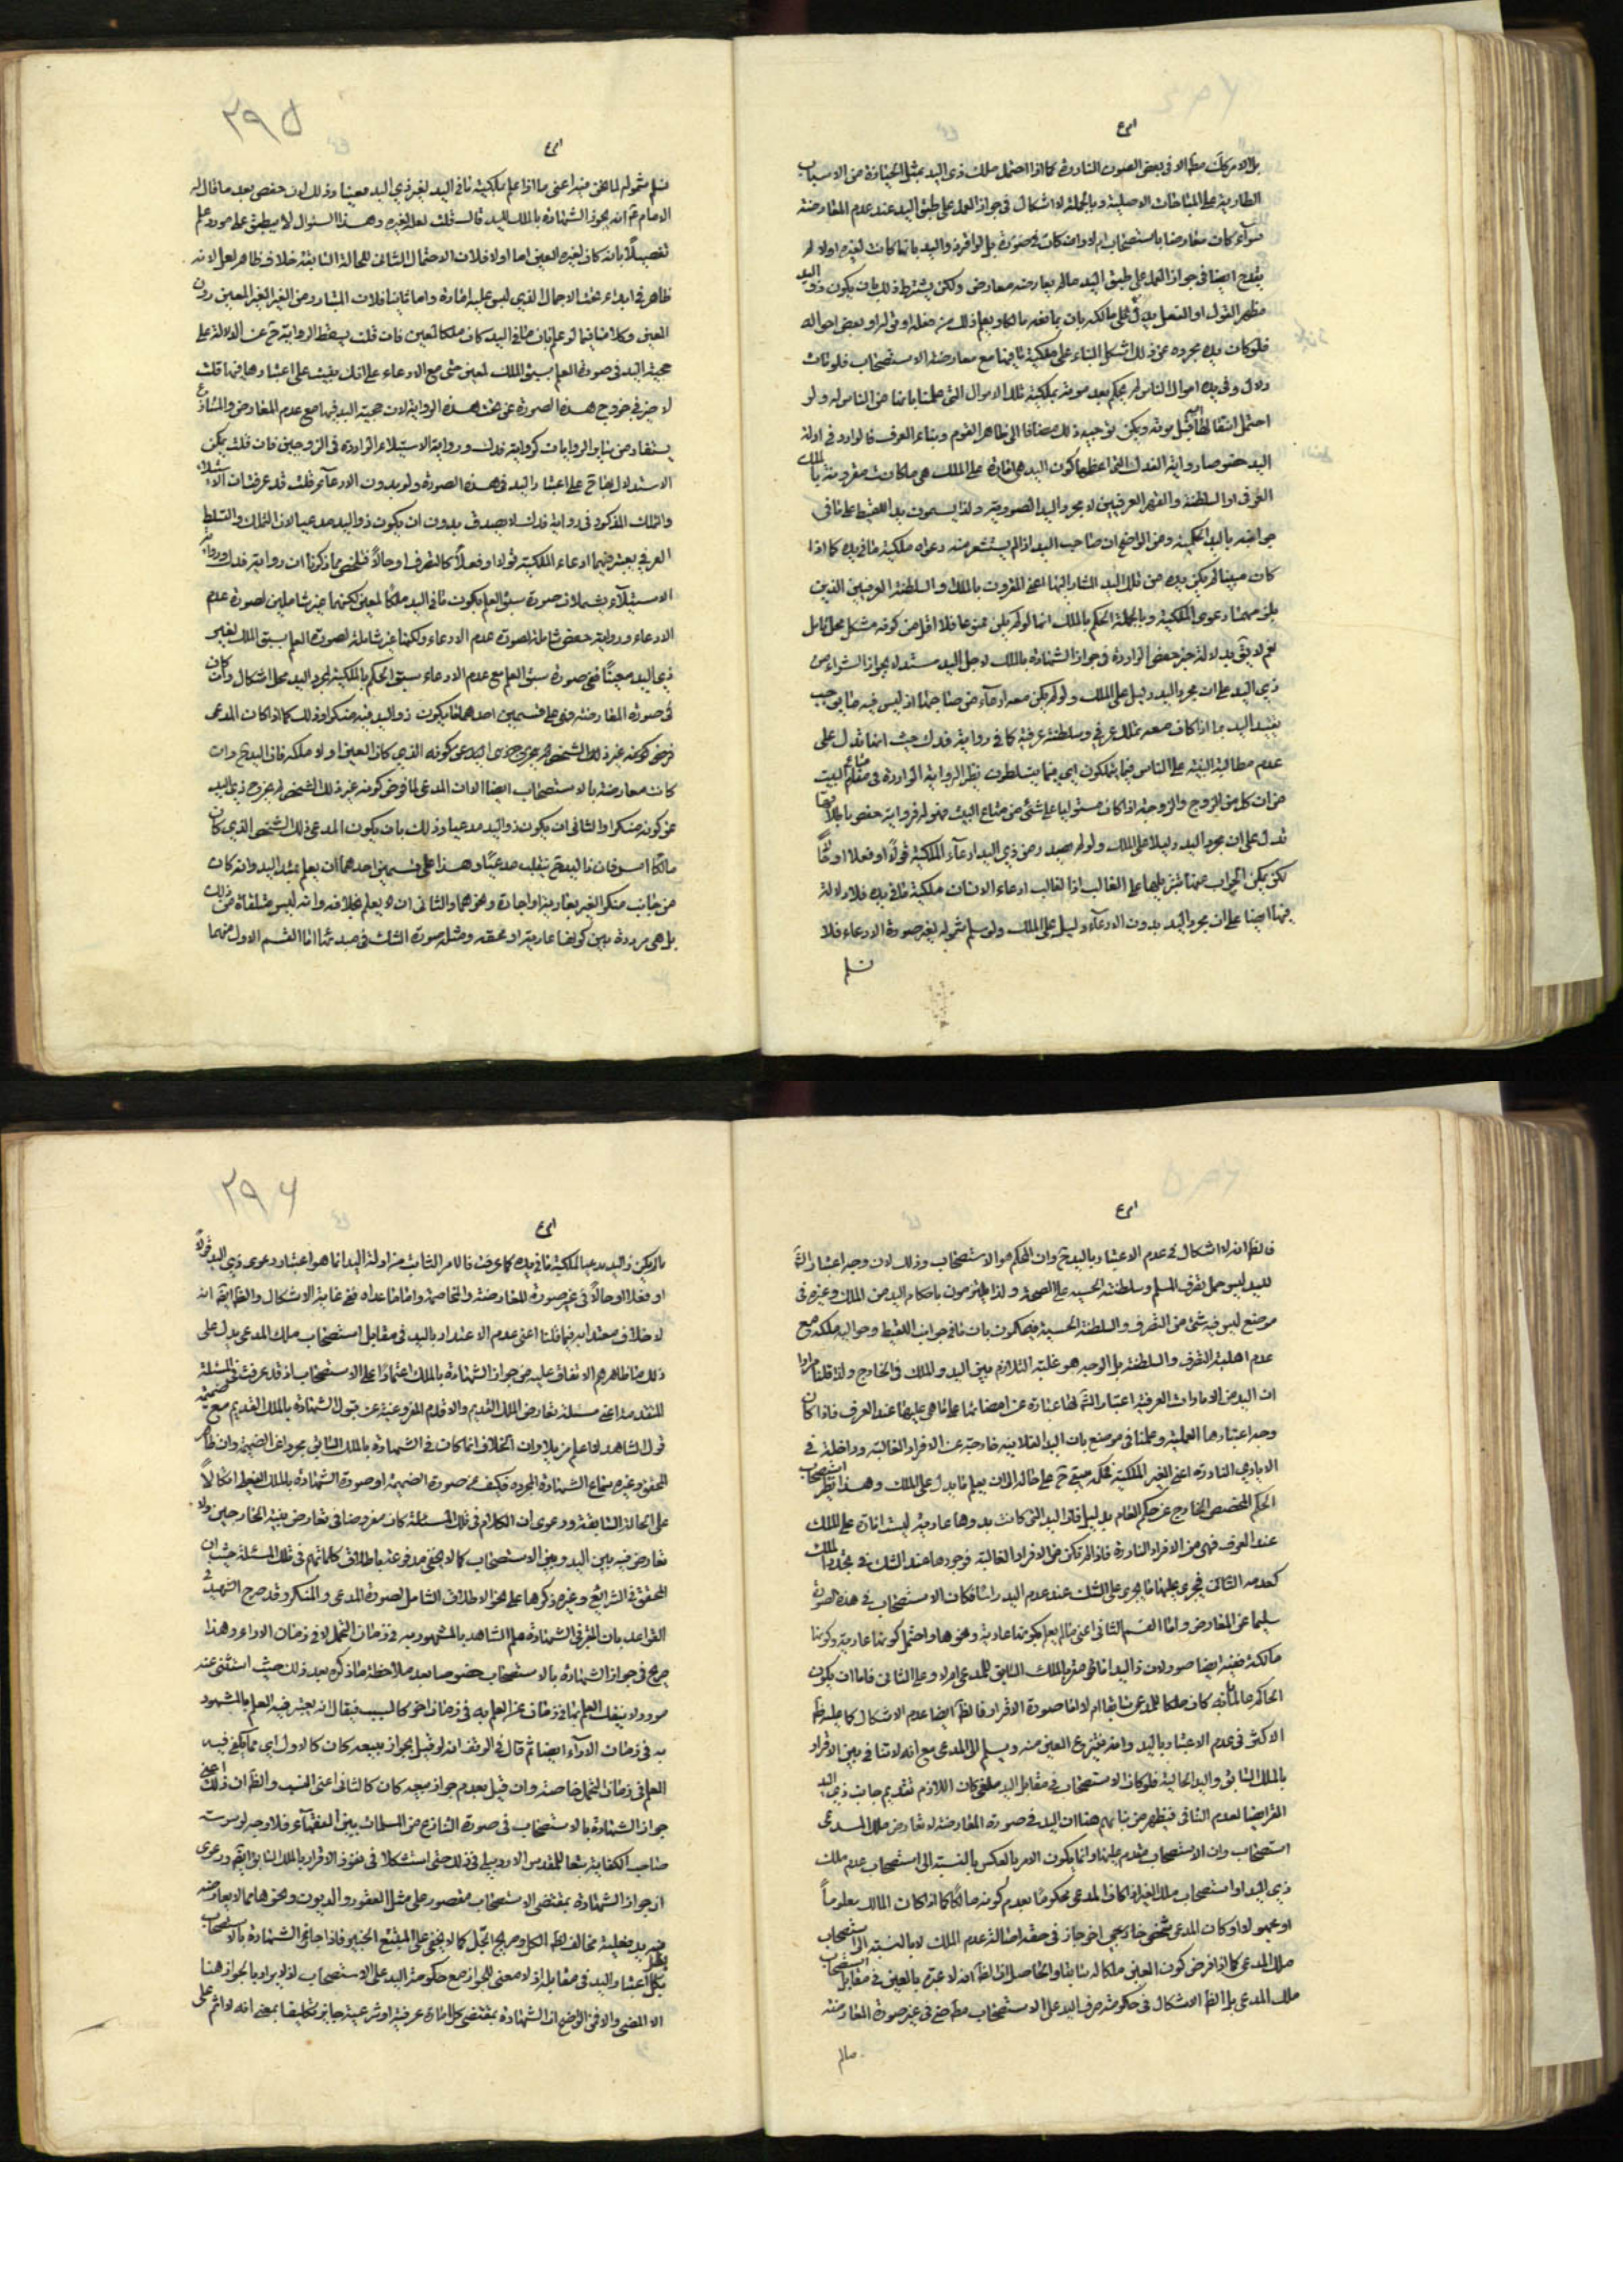 بل الامر كك مط الا في بعض الصور النادرة كما اذا احتمل ملك ذي اليد بمثل الحيازة من الاسباب
الطارية على المباحات الاصلية وبالجملة لا اشكال في جواز العمل على طبق اليد عند عدم المعارضة
سواء كان معارضا باستصحاب ام لا وان كان في صورة
يقدح ايضا في جواز العمل على طبق اليد ما لم يعارضه معارض ولكن يشترط ذلك بان يكون ذو اليد
فلو كان يده مجردة عن ذلك اشكل البناء على ملكية ما فيها مع معارضة الاستصحاب فلو مات
دلال وفي يده اموال الناس لم يحكم بعد موته بملكية تلك الاموال التي علمنا بانها من الناس له ولو
احتمل انتقالها اليه قبل موته ويمكن توجيه ذلك مضافا الى ظاهر القوم وبناء العرف فالوارد في ادلة
اليد خصوصا رواية الفدك التي اعظمها كون اليد هي امارة على الملك هي ما كانت مقرونة بالملك
العرفي او السلطنة والقهر العرفيين لا مجرد اليد الصورية ولذا يسمون يد اللقيط على ما في
جوانبه باليد الحكمية ومن الواضح ان صاحب اليد اذا لم يستشعر منه دعواه ملكية ما في يده كما اذا
كان ميتا لم يكن يده من تلك اليد المشار اليها اعني المقرون بالملك والسلطنة العرفيين الذين
يلزمهما دعوى الملكية وبالجملة الحكم بالملك انما لو لم يكن ممنوعا فلا اقل من كونه مشكل محل تامل
نعم لا يق بدلالة خبر حفص الواردة في جواز الشهادة بالملك لاجل اليد مستدلا بجواز الشراء من
ذي اليد على ان مجرد اليد دليل على الملك ولو لم يكن معه ادعاء من صاحبها اذ ليس فيه ما يوجب
تقييد اليد بما اذا كان معه تملك عرفي وسلطنة عرفية كما في رواية فدك حيث انها تدل على
عدم مطالبة البينة على الناس فيما يملكون اي فيما يتسلطون نظير الرواية الواردة في مقام متاع البيت
من ان كل من الزوج والزوجة اذا كان مستوليا على شئ من متاع البيت فهو له فرواية حفص باطلاقها
تدل على ان مجرد اليد دليلا على الملك ولو لم يصدر من ذي اليد ادعاء الملكية قولا او فعلا او حالا
لكن يمكن الجواب عنها بتنزيلها على الغالب اذ الغالب ادعاء الانسان ملكية ما في يده فلا دلالة
فيها ايضا على ان مجرد اليد بدون الادعاء دليل على الملك ولو سلم شموله لغير صورة الادعاء فلا
نسلم
٢٩٥
نسلم شموله لما نحن فيه اعني ما اذا علم ملكية ما في اليد لغير ذي اليد معينا وذلك لان حفص بعد ما قال له
الامام ع انه يجوز الشهادة بالملك لليد قال قلت لعله لغيره وهذا السئوال لا ينطبق على مورد علم
تفصيلا بانه كان لغيره المعين اما اولا فلان الاحتمال الثاني للحالة السابقة خلاف ظاهر لعل لانه
ظاهر في ابداء بحث الاحتمال الذي ليس عليه امارة واما ثانيا فلان المتبادر من الغير الغير المعين دون
المعين وكلامنا فيما لو علم بان ما في اليد كان ملكا لمعين فان قلت يسقط الرواية ح عن الدلالة على
حجية اليد في صورة العلم بسبق الملك لمعين حتى مع الادعاء على انك بنيت على اعتبارها فيها قلت
لا ضير في خروج هذه الصورة عن تحت هذه الرواية لان حجية اليد فيها مع عدم المعارض والمنازع
يستفاد من ساير الروايات كرواية فدك ورواية الاستيلاء الواردة في الزوجين فان قلت يمكن
الاستدلال بهما ح على اعتبار اليد في هذه الصورة ولو بدون الادعاء قلت قد عرفت ان الاستيلاء
والملك المذكور في رواية فدك لا يصدق بدون ان يكون ذو اليد مدعيا لان التملك والتسلط
العرفي يعتبر فيهما ادعاء الملكية قولا او فعلا كالتصرف او حالا فتلخص مما ذكرنا ان رواية فدك ورواية
الاستيلاء يشملان صورة سبق العلم بكون ما في اليد ملكا لمعين لكنهما غير شاملين لصورة عدم
الادعاء ورواية حفص شاملة لصورة عدم الادعاء ولكنها غير شاملة لصورة العلم بسبق الملك لغير
ذي اليد معينا ففي صورة سبق العلم مع عدم الادعاء سبق الحكم بالملكية لمجرد اليد محل اشكال وان كان
في صورة المعارضة فهي على قسمين احدهما ما يكون ذو اليد فيه منكرا وذلك كما اذا كان المدعي
كانت معارضة بالاستصحاب ايضا الا ان المدعى لما فرض كونه غير ذلك الشخص لم يخرج ذي اليد
عن كونه منكرا والثاني ان يكون ذو اليد مدعيا وذلك بان يكون المدعي ذلك الشخص الذي كان
مالكا امس فان ذا اليد ح ينقلب مدعيا وهذا على قسمين احدهما ان يعلم بمبدء اليد وانه كان
من جانب منكر الغير بعارية او اجارة ونحوهما والثاني ان لا يعلم بخلافه وانه ليس متلقاة من ذلك
بل هي مرددة بين كونها عارية او محقة ومثله صورة الشك في مبدئها اما القسم الاول منهما
فالظ انه لا اشكال في عدم الاعتبار باليد ح وان المحكم هو الاستصحاب وذلك لان وجه اعتبار الش
لليد ليس حمل تصرف المسلم وسلطنته الحسية على الصحة ولذا يلتزمون باحكام اليد من الملك وغيره في
موضع ليس فيه شئ من التصرف والسلطنة الحسية فيحكمون بان ما في جوانب اللقيط وحواليه ملكه مع
عدم اهلية التصرف والسلطنة بل الوجه هو غلبة التلازم بين اليد والملك في الخارج ولذا قلنا مرارا
ان اليد من الامارات العرفية اعتبار الش لها عبارة عن امضائها على ما هي عليها عند العرف فاذا كان
وجه اعتبارها الغلبة وعلمنا في موضع بان اليد الفلانية خارجة عن الافراد الغالبة وداخلة في
الايادي النادرة اعني الغير الملكية فلكل مبقى ح على حاله الى ان يعلم ما يدل على الملك وهذا نظير استصحاب
الحكم المخصص الخارج عن حكم العام بدليل فاذن اليد التي كانت بدوها عادية ليست امارة على الملك
عند العرف فهي من الافراد النادرة فاذا لم تكن من الافراد الغالبة فوجودها عند الشك في تجدد الملك
كعدمه الثاني فيجري عليها ما يجري على الشك عند عدم اليد راسا فكان الاستصحاب في هذه الصورة
سليما عن المعارض واما القسم الثاني اعني ما لم يعلم بكونها عادية ونحوها واحتمل كونها عادية وكونها
مالكة ففيه ايضا صور لان ذا اليد اما في مقر بالملك السابق للمدعي ام لا وعلى الثاني فاما ان يكون
الحاكم عالما بانه كان ملكا للمدعي سابقا ام لا اما صورة الاقرار فالظ ايضا عدم الاشكال كما عليه ظ
الاكثر في عدم الاعتبار باليد وانه ينتزع العين منه ويسلم الى المدعي مع انه لا تنافي بين الاقرار
بالملك السابق واليد الحالية فلو كان الاستصحاب في مقابل اليد ملغى كان اللازم تقديم جانب ذي اليد
المقر ايضا لعدم التنافي فيظهر من بنائهم هنا ان اليد في صورة المعارضة لا تعارض ملك المدعي
استصحاب وان الاستصحاب مقدم عليها وانما يكون الامر بالعكس بالنسبة الى استصحاب عدم ملك
ذي اليد او استصحاب ملك الغير اذا كان المدعي محكوما بعدم كونه مالكا كما اذا كان المالك معلوما
او مجهولا وكان المدعي شخص خارجي اخر جاز في حقه اصالة عدم الملك لا بالنسبة الى استصحاب
ملك المدعي كما اذا فرض كون العين ملكا له سابقا والحاصل ان الظ انه لا عبرة باليد في مقابل استصحاب
ملك المدعي بل الظ الاشكال في حكومة صرف اليد على الاستصحاب مط حتى في غير صورة المعارضة
مالم
٢٩٦
ما لم يكن ذو اليد مدعيا لملكية ما في يده كما عرفت فالامر الثابت من ادلة اليد انما هو اعتبار دعوى ذي اليد قولا
او فعلا او حالا في غير صورة المعارضة والمخاصمة واما ما عداه ففي غاية الاشكال والظ ايضا انه
لا خلاف معتد به فيما قلنا اعني عدم الاعتداد باليد في مقابل استصحاب ملك المدعي يدل على
ذلك ما ظاهرهم الاتفاق عليه من جواز الشهادة بالملك اعتمادا على الاستصحاب اذ قد عرفت في المسئلة
المتقدمة اعني مسئلة تعارض الملك القديم والاقدم المفروغية عن قبول الشهادة بالملك القديم مع ضميمة
قول الشاهد لا اعلم مزيلا وان الخلاف انما كان في الشهادة بالملك السابق مجردا عن الضميمة وان ظاهر
المحقق وغيره سماع الشهادة المجردة فكيف عن صورة الضميمة او صورة الشهادة بالملك الفعلي اتكالا
على الحالة السابقة ودعوى ان الكلام في تلك المسئلة كان مفروضا في تعارض بينة الخارجين ولا
تعارض فيه بين اليد وبين الاستصحاب كما لا يخفى مدفوعة باطلاق كلماتهم في تلك المسئلة حيث ان
المحقق في الشرايع وغيره ذكرها على نحو الاطلاق الشامل لصورة المدعي والمنكر وقد صرح الشهيد في
القواعد بان المعتبر في الشهادة علم الشاهد بالمشهود به في زمان التحمل لا في زمان الاداء وهذا
صريح في جواز الشهادة بالاستصحاب خصوصا بعد ملاحظة ما ذكره بعد ذلك حيث استثنى عنه
موردا لا ينفك العلم بها في زمان عن العلم به في زمان اخر كالنسب فقال انه يعتبر فيه العلم بالمشهود
به في زمان الاداء ايضا ثم قال في الوقف انه لو قيل بجواز بيعه كان كالاول اي مما يكفي فيه
العلم في زمان التحمل خاصة وان قيل بعدم جواز بيعه كان كالثاني اعني النسب والظ ان ذلك اعني
جواز الشهادة بالاستصحاب في صورة التنازع من المسلمات بين الفقهاء فلا وجه لوسوسة
صاحب الكفاية تبعا للمقدس الاردبيلي في ذلك حتى استشكلا في نفوذ الاقرار بالملك السابق ايضا ودعوى
ان جواز الشهادة بمقتضى الاستصحاب مقصور على مثل العقود والديون ونحوها مما لا يعارضه
فيه يد فعلية مخالف لظ الكل وصريح الجل كما لا يخفى على المتتبع الخبير فاذا جاز الشهادة بالاستصحاب
بطل اعتبار اليد في مقابله اذ لا معنى للجواز مع حكومة اليد على الاستصحاب اذ لا يراد بالجواز هنا
الا المضي والا فمن الواضح ان الشهادة بمقتضى كل امارة عرفية او شرعية جايز تكليفا بمعنى انه لا اثم على